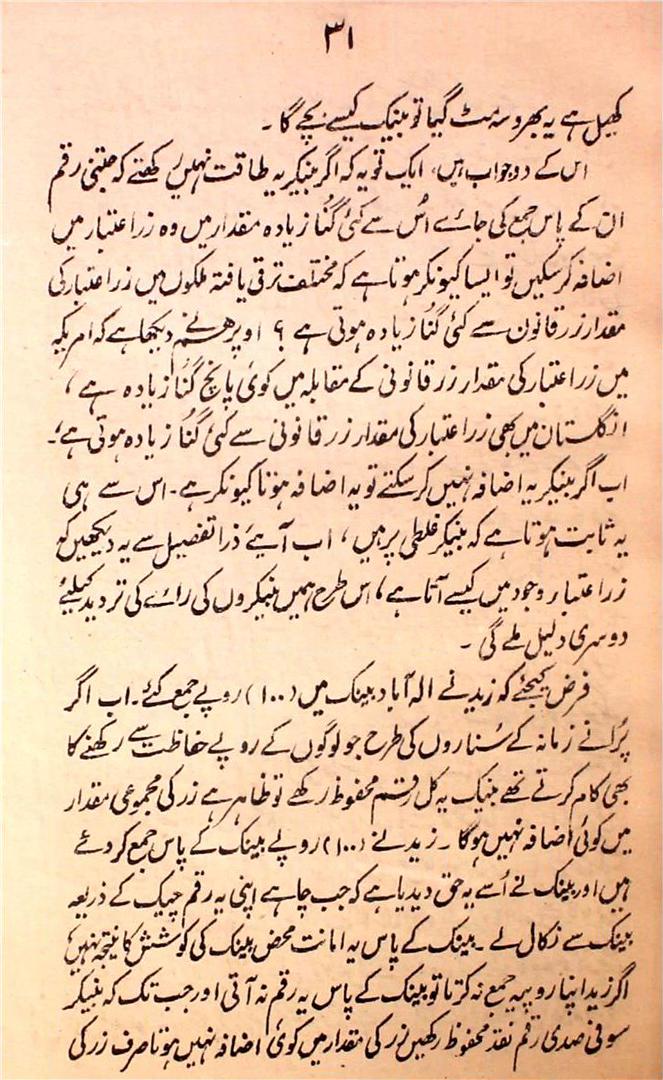 ۳۱
کھیل ہے یہ بھروسہ مٹ گیا تو بینک کیسے بچے گا۔
اس کے دو جواب ہیں، ایک تو یہ کہ اگر بنیکر یہ طاقت نہیں رکھتے کہ جتنی رقم
ان کے پاس جمع کی جائے اُس سے کئی گُنا زیادہ مقدار میں وہ زر اعتبار میں
اضافہ کر سکیں تو ایسا کیونکر ہوتا ہے کہ مختلف ترقی یافتہ ملکوں میں زر اعتبار کی
مقدار زر قانون سے کئی گُنا زیادہ ہوتی ہے ؟ اوپر ہم نے دیکھا ہے کہ امریکہ
میں زر اعتبار کی مقدار زر قانونی کے مقابلہ میں کوئی پانچ گُنا زیادہ ہے،
انگلستان میں بھی زر اعتبار کی مقدار زر قانونی سے کئی گُنا زیادہ ہوتی ہے۔
اب اگر بنیکر یہ اضافہ نہیں کر سکتے تو یہ اضافہ ہوتا کیونکر ہے۔ اس سے ہی
یہ ثابت ہوتا ہے کہ بنیکر غلطی پر ہیں، اب آیئے ذرا تفصیل سے یہ دیکھیں کہ
زر اعتبار وجود میں کیسے آتا ہے، اس طرح ہمیں بنیکروں کی رائے کی تردید کیلئے
دوسری دلیل ملے گی ۔
فرض کیجئے کہ زید نے الہ آباد بینک میں (۱۰۰) روپے جمع کئے۔ اب اگر
پُرانے زمانہ کے سُناروں کی طرح جو لوگوں کے روپے حفاظت سے رکھنے کا
بھی کام کرتے تھے بینک یہ کل رقم محفوظ رکھے تو ظاہر ہے زر کی مجموعی مقدار
میں کوئی اضافہ نہیں ہوگا ۔ زید نے (۱۰۰) روپے بینک کے پاس جمع کر دئے
ہیں اور بینک نے اُسے یہ حق دیدیا ہے کہ جب چاہے اپنی یہ رقم چیک کے ذریعہ
بینک سے نکال لے ۔ بینک کے پاس یہ امانت محض بینک کی کوشش کا نتیجہ نہیں
اگر زید اپنا روپیہ جمع نہ کرتا تو بینک کے پاس یہ رقم نہ آتی اور جب تک کہ بنیکر
سو فی صدی رقم نقد محفوظ رکھیں زر کی مقدار میں کوئی اضافہ نہیں ہوتا صرف زر کی